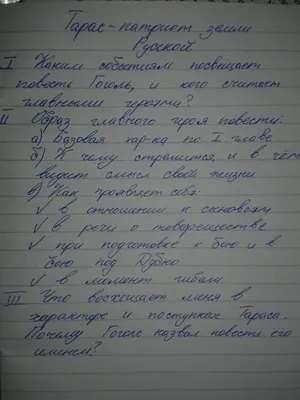 Тарас - патриот земли
Русской
I Каким событиям посвящает
повесть Гоголь, и кого считает
главными героями?
II Образ главного героя повести:
а) Базовая хар-ка по I главе
б) К чему стремится, и в чём
видит смысл своей жизни
в) Как проявляет себя:
✓ в отношении к сыновьям
✓ в речи о товариществе
✓ при подготовке к бою и в
бою под Дубно
✓ в момент гибели
III Что восхищает меня в
характере и поступках Тараса.
Почему Гоголь назвал повесть его
именем?